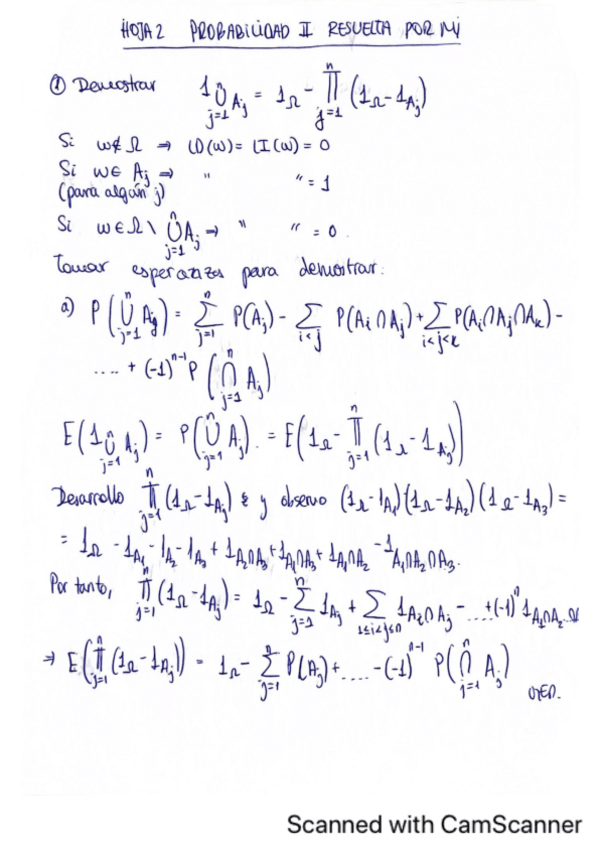 HOJA 2 PROBABILIDAD II RESUELTA POR MI
① Demostrar 1_{⋃_{j=1}^{n} A_j} = 1_Ω - ∏_{j=1}^{n} (1_Ω - 1_{A_j})
Si w∉Ω ⇒ LD(w) = LI(w) = 0
Si w∈ A_j ⇒ " " = 1
(para algún j)
Si w∈Ω \ ⋃_{j=1}^{n} A_j ⇒ " " = 0.
Tomar esperanzas para demostrar:
a) P(⋃_{j=1}^{n} A_j) = ∑_{j=1}^{n} P(A_j) - ∑_{i<j} P(A_i ∩ A_j) + ∑_{i<j<k} P(A_i ∩ A_j ∩ A_k) -
.... + (-1)^{n-1} P(⋂_{j=1}^{n} A_j)
E(1_{⋃_{j=1}^{n} A_j}) = P(⋃_{j=1}^{n} A_j) = E(1_Ω - ∏_{j=1}^{n} (1_Ω - 1_{A_j}))
Desarrollo ∏_{j=1}^{n} (1_Ω - 1_{A_j}) y observo (1_Ω - 1_{A_1})(1_Ω - 1_{A_2})(1_Ω - 1_{A_3}) =
= 1_Ω - 1_{A_1} - 1_{A_2} - 1_{A_3} + 1_{A_2∩A_3} + 1_{A_1∩A_3} + 1_{A_1∩A_2} - 1_{A_1∩A_2∩A_3}.
Por tanto, ∏_{j=1}^{n} (1_Ω - 1_{A_j}) = 1_Ω - ∑_{j=1}^{n} 1_{A_j} + ∑_{1≤i<j≤n} 1_{A_i∩A_j} - .... + (-1)^n 1_{A_1∩A_2...}
⇒ E(∏_{j=1}^{n} (1_Ω - 1_{A_j})) = 1_Ω - ∑_{j=1}^{n} P(A_j) + .... - (-1)^{n-1} P(⋂_{j=1}^{n} A_j)
QED.
Scanned with CamScanner